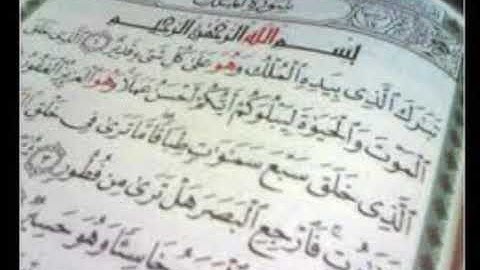 سُورَةُ المُلك
بِسْمِ اللَّهِ الرَّحْمَٰنِ الرَّحِيمِ
تَبَٰرَكَ الَّذِي بِيَدِهِ الْمُلْكُ وَهُوَ عَلَىٰ كُلِّ شَيْءٍ قَدِيرٌ ١ الَّذِي خَلَقَ
الْمَوْتَ وَالْحَيَوٰةَ لِيَبْلُوَكُمْ أَيُّكُمْ أَحْسَنُ عَمَلًا وَهُوَ الْعَزِيزُ الْغَفُورُ
الَّذِي خَلَقَ سَبْعَ سَمَٰوَٰتٍ طِبَاقًا مَّا تَرَىٰ فِي خَلْقِ
فَارْجِعِ الْبَصَرَ هَلْ تَرَىٰ مِن فُطُورٍ ٣
خَاسِئًا وَهُوَ حَسِيرٌ